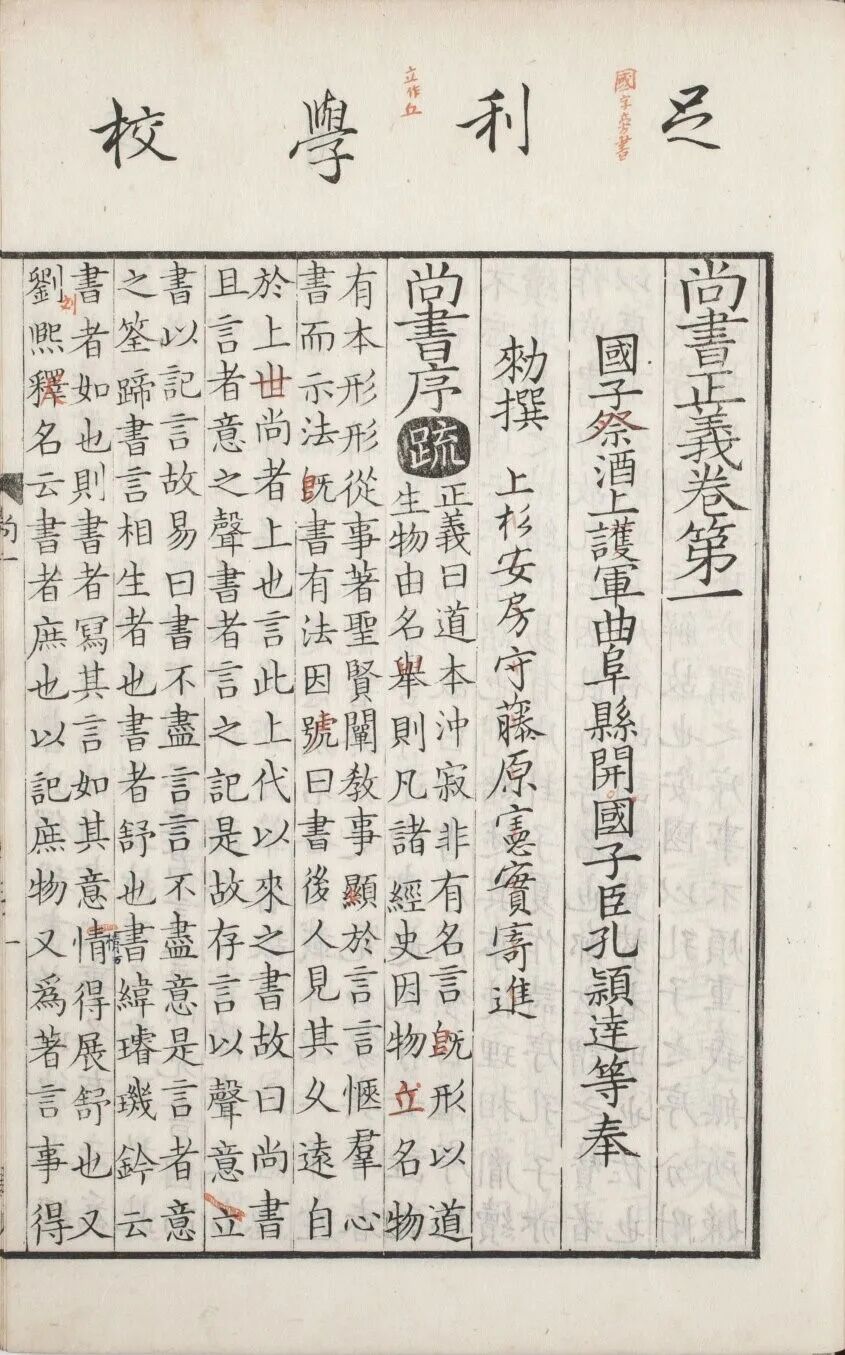 足利學校
國字旁書
立作丘
尚書正義卷第一
國子祭酒上護軍曲阜縣開國子臣孔穎達等奉
勑撰 上杉安房守藤原憲實寄進
尚書序 疏 正義曰道本沖寂非有名言既形以道
生物由名舉則凡諸經史因物立名物
有本形形從事著聖賢闡敎事顯於言言愜羣心
書而示法既書有法因號曰書後人見其久遠自
於上世尚者上也言此上代以來之書故曰尚書
且言者意之聲書者言之記是故存言以聲意立
書以記言故易曰書不盡言言不盡意是言者意
之筌蹄書言相生者也書者舒也書緯璿璣鈐云
書者如也則書者寫其言如其意情得展舒也又
劉熙釋名云書者庶也以記庶物又爲著言事得
尚一